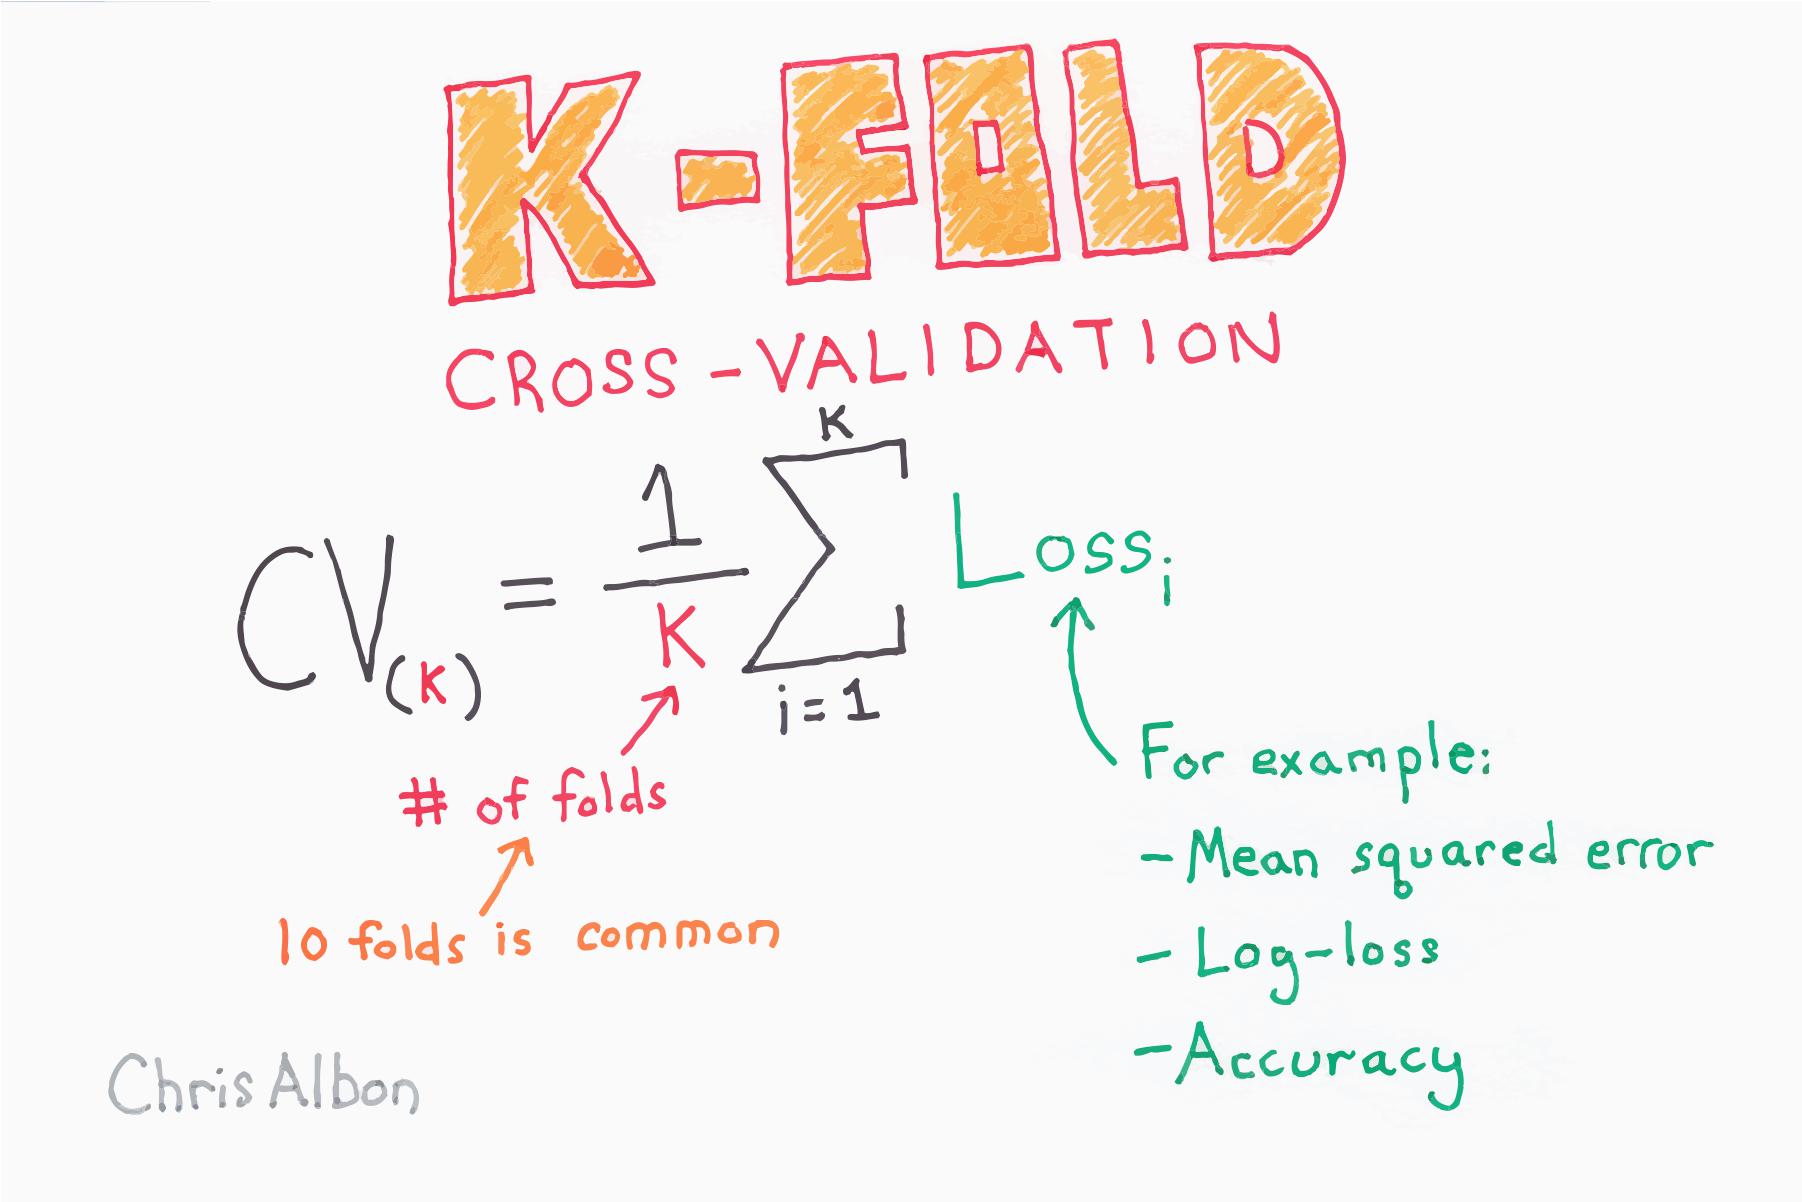 K-FOLD
CROSS-VALIDATION
CV(K) = 1/K K Σ i=1 Lossi
# of folds
10 folds is common
For example:
- Mean squared error
- Log-loss
- Accuracy
Chris Albon